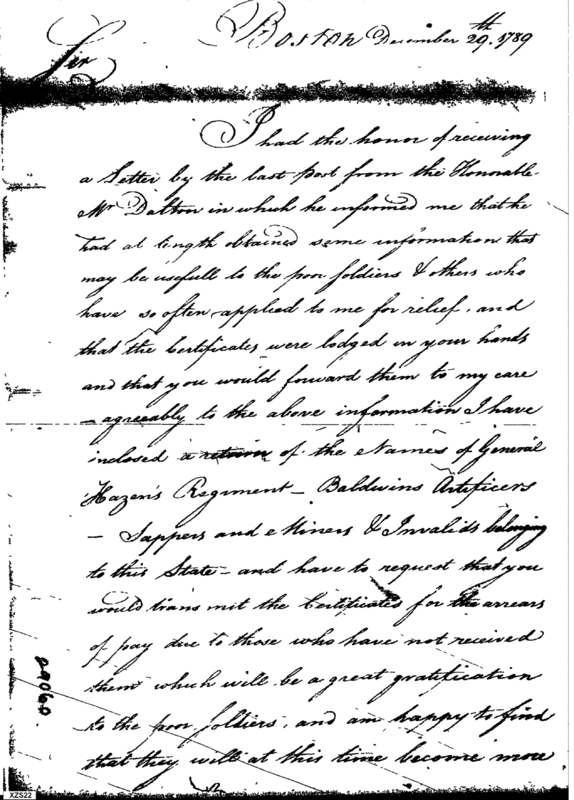 Boston December 29.th 1789
Sir
I had the honor of receiving
a Letter by the last post from the Honorable
Mr Dalton in which he informed me that he
had at length obtained some information that
may be usefull to the poor soldiers & others who
have so often applied to me for relief, and
that the Certificates were lodged in your hands
and that you would forward them to my care
– agreeably to the above information I have
inclosed a return of the Names of General
Hazen's Regiment – Baldwins Artificers
– Sappers and Miners & Invalids belonging
to this State – and have to request that you
would transmit the Certificates for the arrears
of pay due to those who have not received
them which will be a great gratification
to the poor soldiers, and am happy to find
that they will at this time become more
29060
XZS22